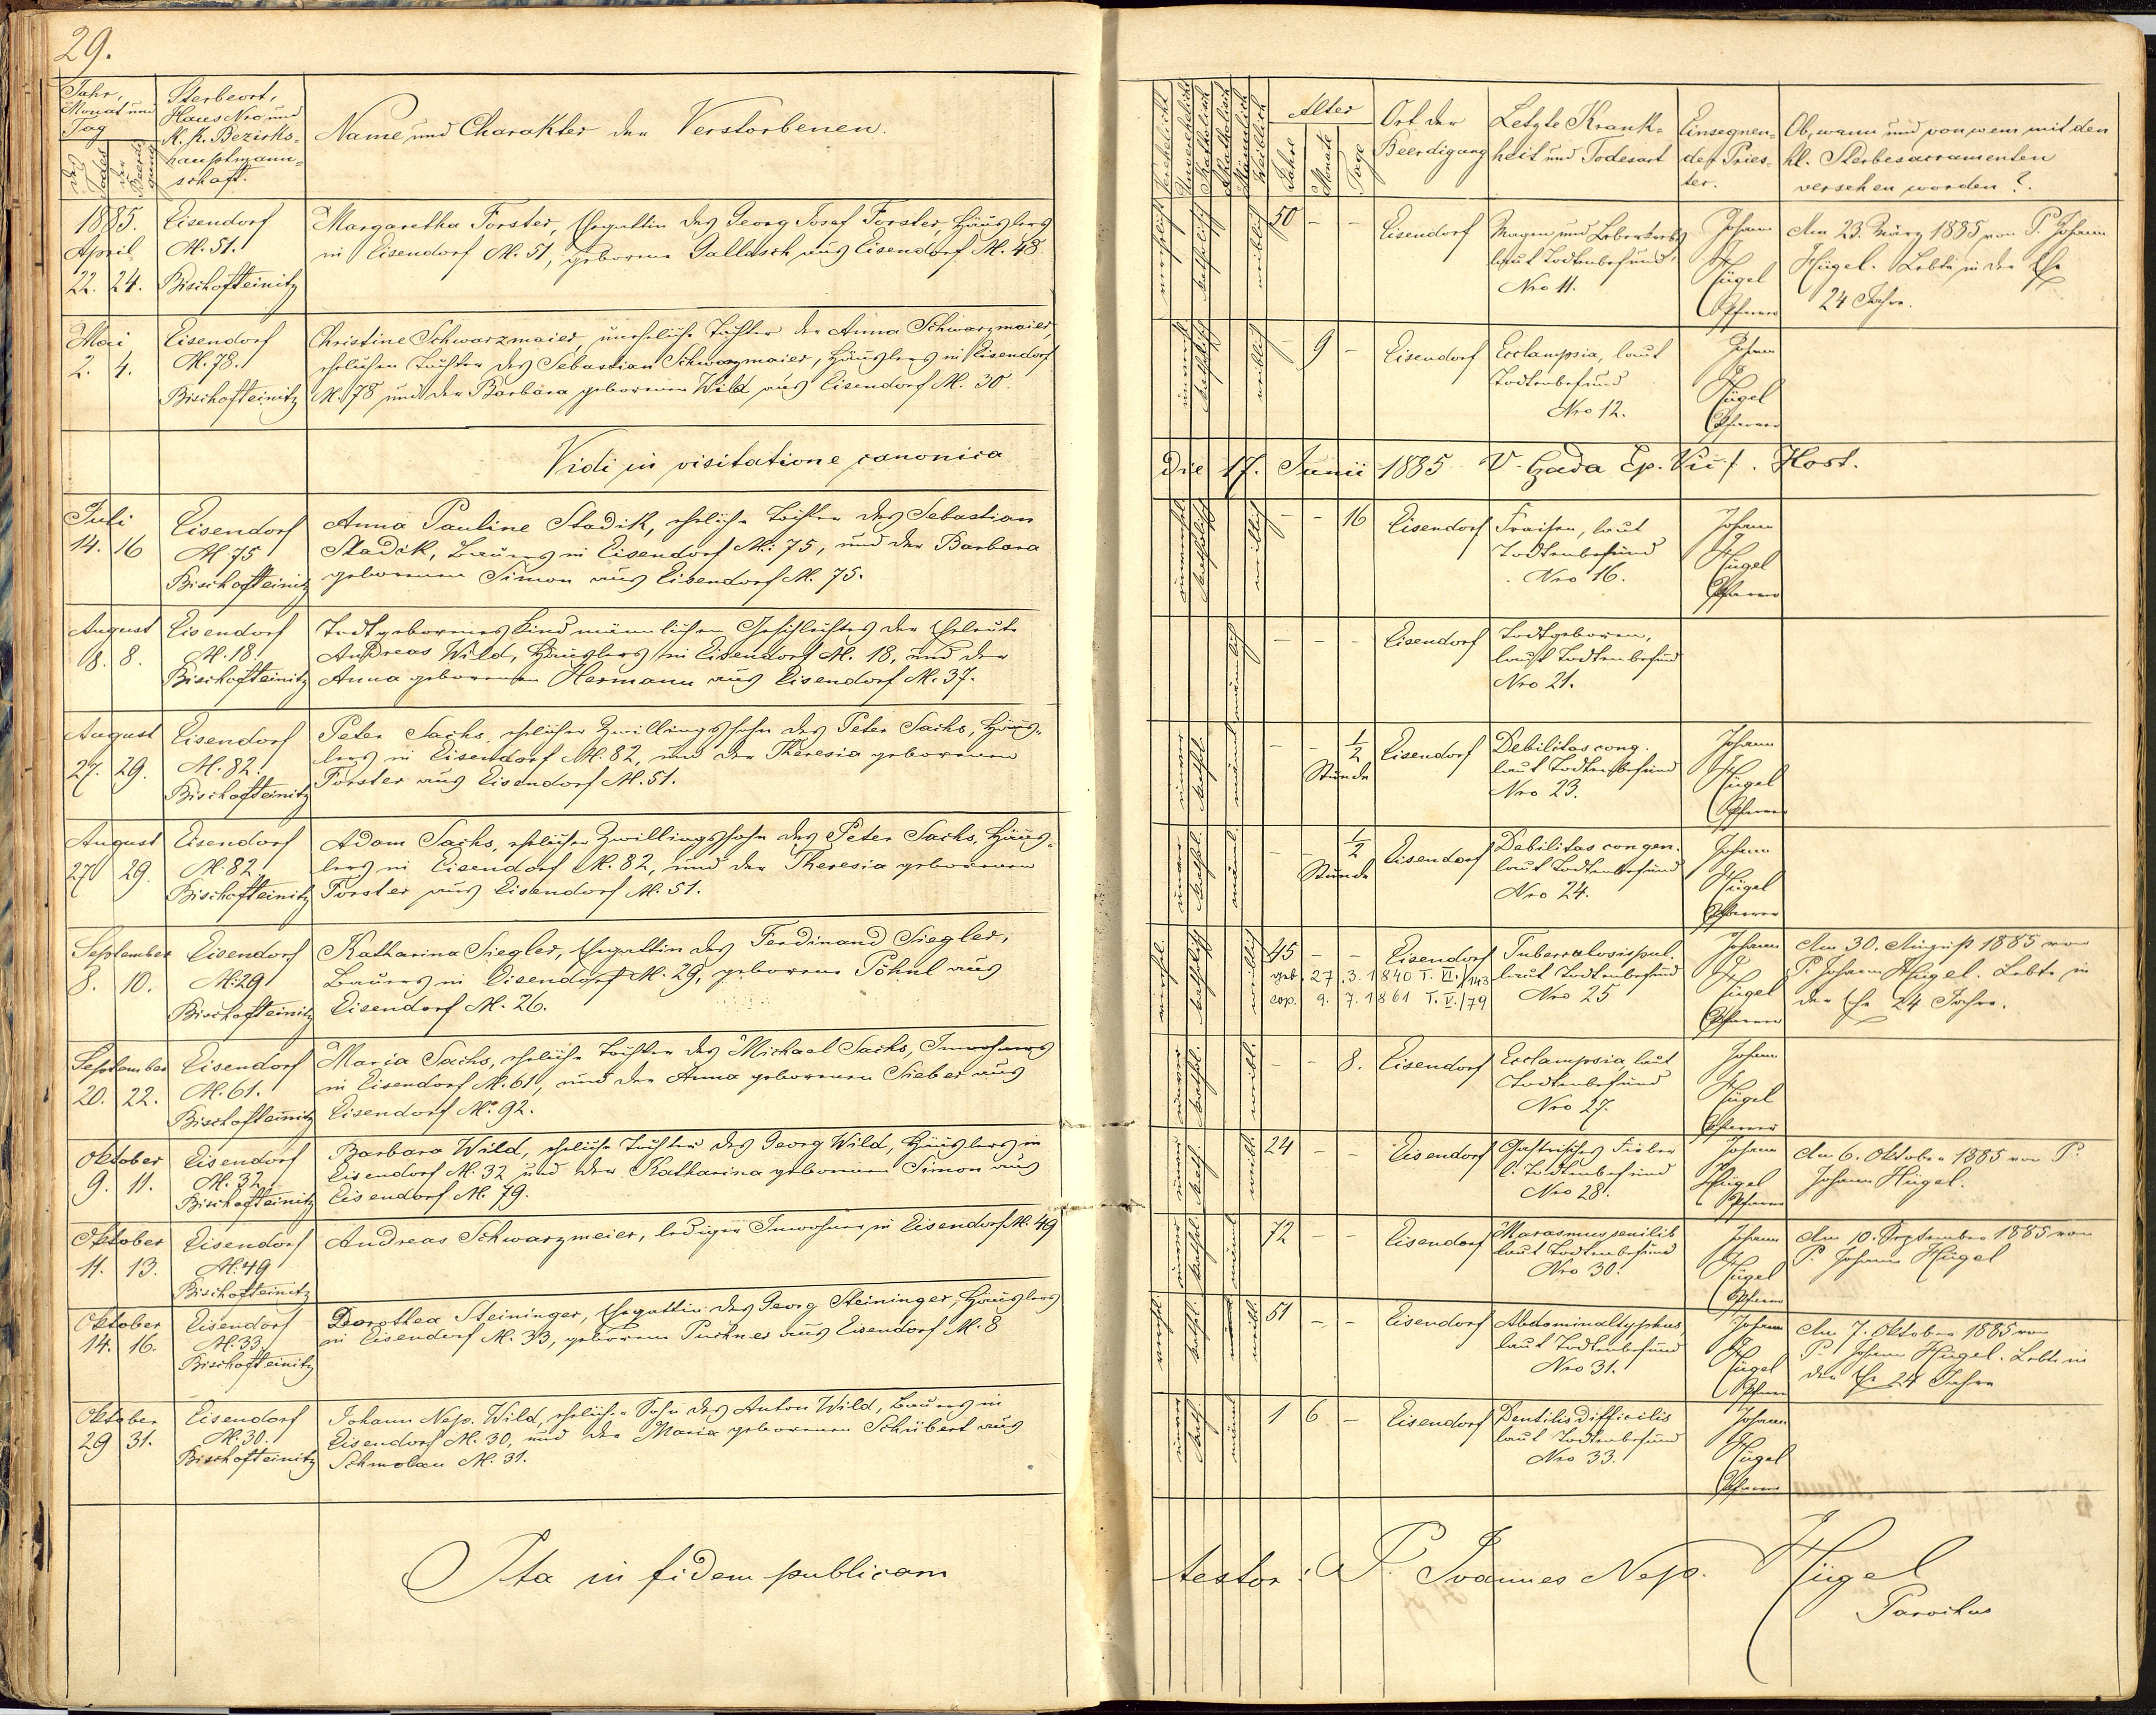 29.
Jahr,
Monat und
Tag
des
Todes
der
Beerdi-
gung
Sterbeort,
Haus Nro und
K. K. Bezirks-
hauptmann-
schaft.
Name und Charakter der Verstorbenen.
Verehelicht
Unverehelicht
Katholisch
Akatholisch
Männlich
Weiblich
Alter
Jahre
Monate
Tage
Ort der
Beerdigung
Letzte Krank-
heit und Todesart
Einsegnen-
der Pries-
ter.
Ob, wann und von wem mit den
hl. Sterbesacramenten
versehen worden?
1885.
April
22. 24.
Eisendorf
N. 51.
Bischofteinitz
Margaretha Forster, Ehegattin des Georg Josef Forster, Häuslers
in Eisendorf N. 51, geborene Gallasch aus Eisendorf N. 48.
verehelicht
katholisch
weiblich
50 – –
Eisendorf
Magen und Leberkrebs
laut Todtenbefund
Nro 11.
Johann
Hügel
Pfarrer
Am 23. März 1885 von P. Johann
Hügel. Lebte in der Ehe
24 Jahre.
Mai
2. 4.
Eisendorf
N. 78.
Bischofteinitz
Christine Schwarzmaier, uneheliche Tochter der Anna Schwarzmaier,
ehelichen Tochter des Sebastian Schwarzmaier, Häuslers in Eisendorf
N. 78 und der Barbara geborenen Wild aus Eisendorf N. 30.
katholisch
weiblich
– 9 –
Eisendorf
Ecclampsia, laut
Todtenbefund
Nro 12.
Johann
Hügel
Pfarrer
Vidi in visitatione canonica
die 17. Junii 1885 Ep. Host.
Juli
14. 16
Eisendorf
N. 75
Bischofteinitz
Anna Pauline Stadik, eheliche Tochter des Sebastian
Stadik, Bauers in Eisendorf N. 75, und der Barbara
geborenen Simon aus Eisendorf N. 75.
katholisch
weiblich
– – 16
Eisendorf
Fraisen, laut
Todtenbefund
Nro 16.
Johann
Hügel
Pfarrer
August
8. 8.
Eisendorf
N. 18.
Bischofteinitz
Todtgeborenes Kind männlichen Geschlechtes der Eheleute
Andreas Wild, Häuslers in Eisendorf N. 18, und der
Anna geborenen Hermann aus Eisendorf N. 37.
männlich
– – –
Eisendorf
Todtgeboren,
laut Todtenbefund
Nro 21.
August
27. 29.
Eisendorf
N. 82.
Bischofteinitz
Peter Sachs, ehelicher Zwillingssohn des Peter Sachs, Häus-
lers in Eisendorf N. 82, und der Theresia geborenen
Forster aus Eisendorf N. 51.
unver
kathol.
männl
– – 1/2
Stunde
Eisendorf
Debilitas cong.
laut Todtenbefund
Nro 23.
Johann
Hügel
Pfarrer
August
27 29.
Eisendorf
N. 82
Bischofteinitz
Adam Sachs, ehelicher Zwillingssohn des Peter Sachs, Häus-
lers in Eisendorf N. 82, und der Theresia geborenen
Forster aus Eisendorf N. 51.
unver
kathol.
männl.
– – 1/2
Stunde
Eisendorf
Debilitas congen.
laut Todtenbefund
Nro 24.
Johann
Hügel
Pfarrer
September
8. 10.
Eisendorf
N. 29
Bischofteinitz
Katharina Siegler, Ehegattin des Ferdinand Siegler,
Bauers in Eisendorf N. 29, geborene Pöhnl aus
Eisendorf N. 26.
verehel.
katholisch
weiblich
45 – –
geb. 27. 3. 1840 T. VI./143
cop. 9. 7. 1861 T. V./79
Eisendorf
Tuberculosis pul.
laut Todtenbefund
Nro 25
Johann
Hügel
Pfarrer
Am 30. August 1885 von
P. Johann Hügel. Lebte in
der Ehe 24 Jahre.
September
20. 22.
Eisendorf
N. 61.
Bischofteinitz
Maria Sachs, eheliche Tochter des Michael Sachs, Inwohners
in Eisendorf N. 61, und der Anna geborenen Sieber aus
Eisendorf N. 92.
unver
kathol.
weibl.
– – 8.
Eisendorf
Ecclampsia, laut
Todtenbefund
Nro 27.
Johann
Hügel
Pfarrer
Oktober
9. 11.
Eisendorf
N. 32.
Bischofteinitz
Barbara Wild, eheliche Tochter des Georg Wild, Häuslers in
Eisendorf N. 32 und der Katharina geborenen Simon aus
Eisendorf N. 79.
unver
kath.
weibl.
24 – –
Eisendorf
Gastrisches Fieber
l. Todtenbefund
Nro 28.
Johann
Hügel
Pfarrer
Am 6. Oktober 1885 von P.
Johann Hügel.
Oktober
11. 13.
Eisendorf
N. 49
Bischofteinitz
Andreas Schwarzmeier, lediger Inwohner in Eisendorf N. 49
unver
kathol.
männl
72 – –
Eisendorf
Marasmus senilis
laut Todtenbefund
Nro 30.
Johann
Hügel
Pfarrer
Am 10. September 1885 von
P. Johann Hügel
Oktober
14. 16.
Eisendorf
N. 33
Bischofteinitz
Dorothea Steininger, Ehegattin des Georg Steininger, Häuslers
in Eisendorf N. 33, geborene Puchner aus Eisendorf N. 8
verehel.
kathol.
weibl.
51 – –
Eisendorf
Abdominaltyphus,
laut Todtenbefund
Nro 31.
Johann
Hügel
Pfarrer
Am 7. Oktober 1885 von
P. Johann Hügel. Lebte in
der Ehe 24 Jahre
Oktober
29 31.
Eisendorf
N. 30.
Bischofteinitz
Johann Nep. Wild, ehelicher Sohn des Anton Wild, Bauers in
Eisendorf N. 30, und der Maria geborenen Schubert aus
Schmolau N. 31.
unver
kath
männl
1 6 –
Eisendorf
Dentitis difficilis
laut Todtenbefund
Nro 33.
Johann
Hügel
Pfarrer
Ita in fidem publicam
testor: P. Joannes Nep. Hügel
Parochus